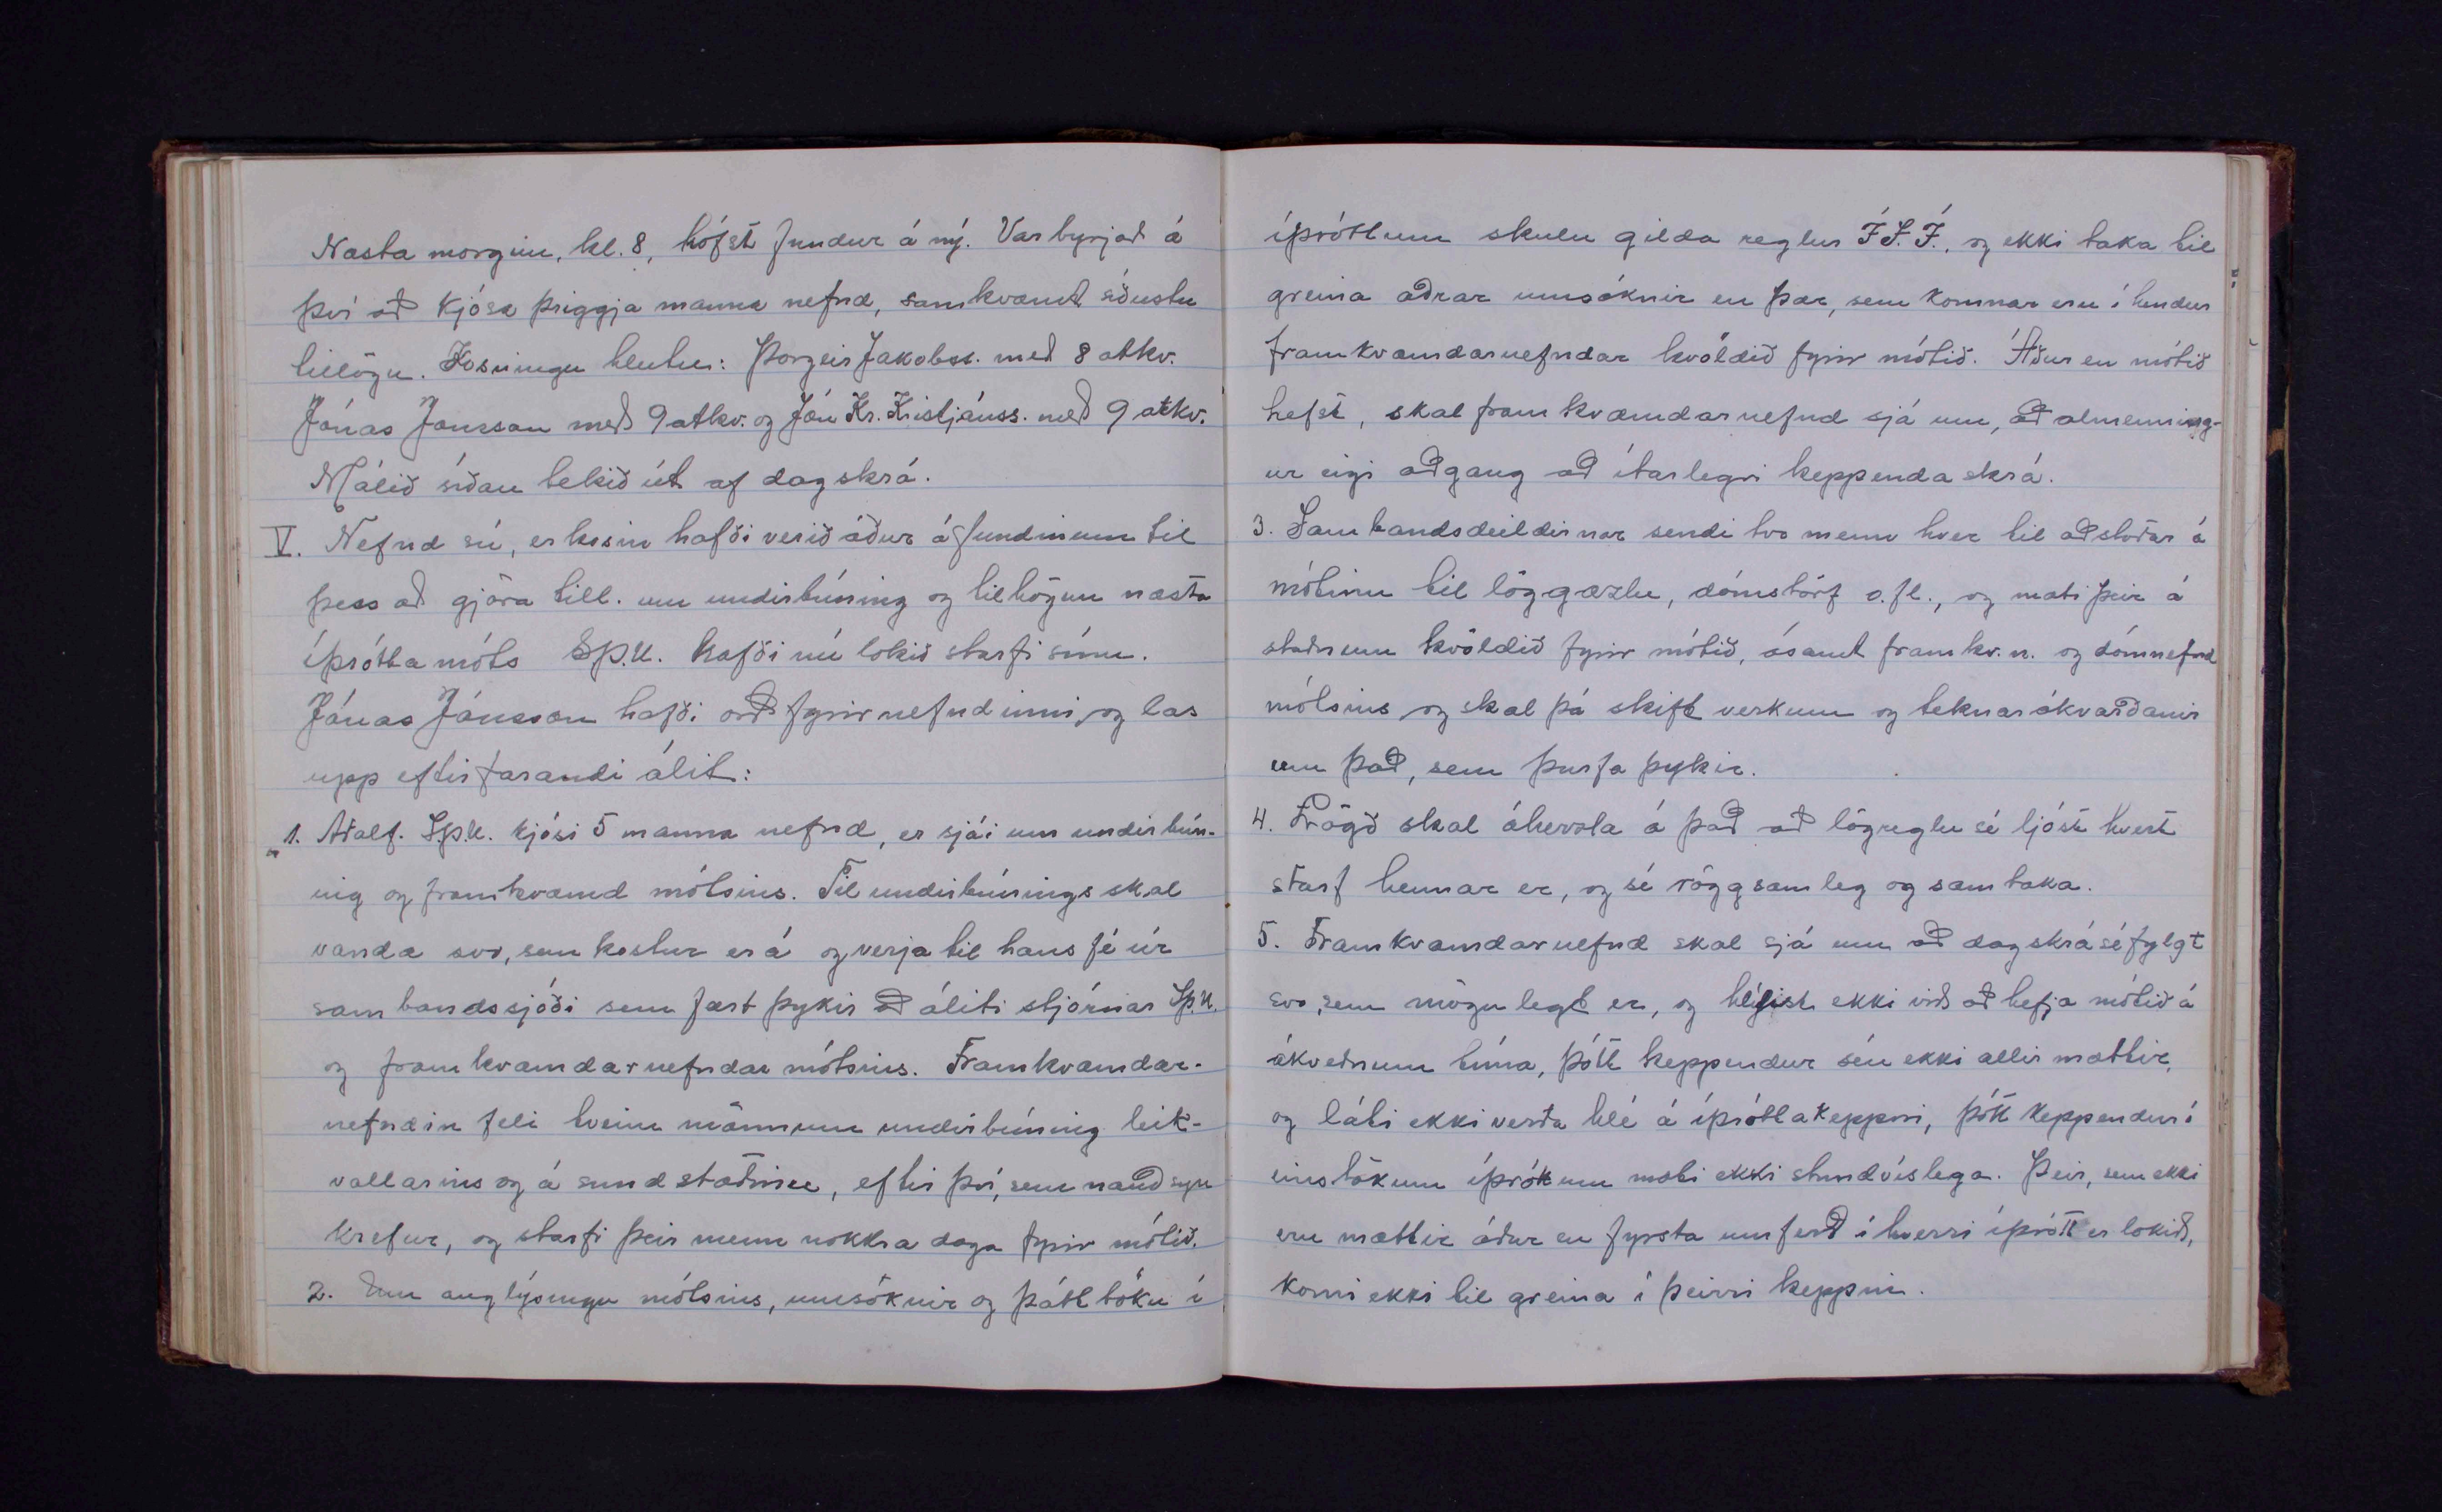 Næsta morgun, kl. 8, hófst fundur á ný. Var byrjað á
því að kjósa þriggja manna nefnd, samkvæmt síðustu
tillögu. Kosningu hlutu: Þorgeir Jakobss. með 8 atkv.
Jónas Jónsson með 9 atkv. og Jón Kr. Kristjánss. með 9 atkv.
Málið síðan tekið út af dagskrá.
V. Nefnd sú, er kosin hafði verið áður á fundinum til
þess að gjöra till. um undirbúning og tilhögun næsta
íþróttamóts S.Þ.U. hafði nú lokið starfi sínu.
Jónas Jónsson hafði orð fyrir nefndinni, og las
upp eftirfarandi álit:
„1. Aðalf. S.Þ.U. kjósi 5 manna nefnd, er sjái um undirbún-
ing og framkvæmd mótsins. Til undirbúnings skal
vanda svo, sem kostur er á og verja til hans fé úr
sambandssjóði sem fært þykir að áliti stjórnar S.Þ.U.
og framkvæmdarnefndar mótsins. Framkvæmdar-
nefndin feli tveim mönnum undirbúning leik-
vallarins og á sundstæðinu, eftir því, sem nauðsyn
krefur, og starfi þeir menn nokkra daga fyrir mótið.
2. Um auglýsingu mótsins, umsóknir og þátttöku í
íþróttum skulu gilda reglur Í.S.Í., og ekki taka til
greina aðrar umsóknir en þær, sem komnar eru í hendur
framkvæmdarnefndar kvöldið fyrir mótið. Áður en mótið
hefst, skal framkvæmdarnefnd sjá um, að almenning-
ur eigi aðgang að ítarlegri keppendaskrá.
3. Sambandsdeildirnar sendi tvo menn hver til aðstoðar á
mótinu til löggæzlu, dómstörf o.fl., og mæti þeir á
staðnum kvöldið fyrir mótið, ásamt framkv.n. og dómnefnd
mótsins og skal þá skift verkum og teknar ákvarðanir
um það, sem þurfa þykir.
4. Lögð skal áherzla á það að lögreglu sé ljóst hvert
starf hennar er, og sé röggsamleg og samtaka.
5. Framkvæmdarnefnd skal sjá um að dagskrá sé fylgt
svo, sem mögulegt er, og hlífist ekki við að hefja mótið á
ákveðnum tíma, þótt keppendur séu ekki allir mættir,
og láti ekki verða hlé á íþróttakeppni, þótt keppendur í
einstökum íþróttum mæti ekki stundvíslega. Þeir, sem ekki
eru mættir áður en fyrsta umferð í hverri íþrótt er lokið,
komi ekki til greina í þeirri keppni.